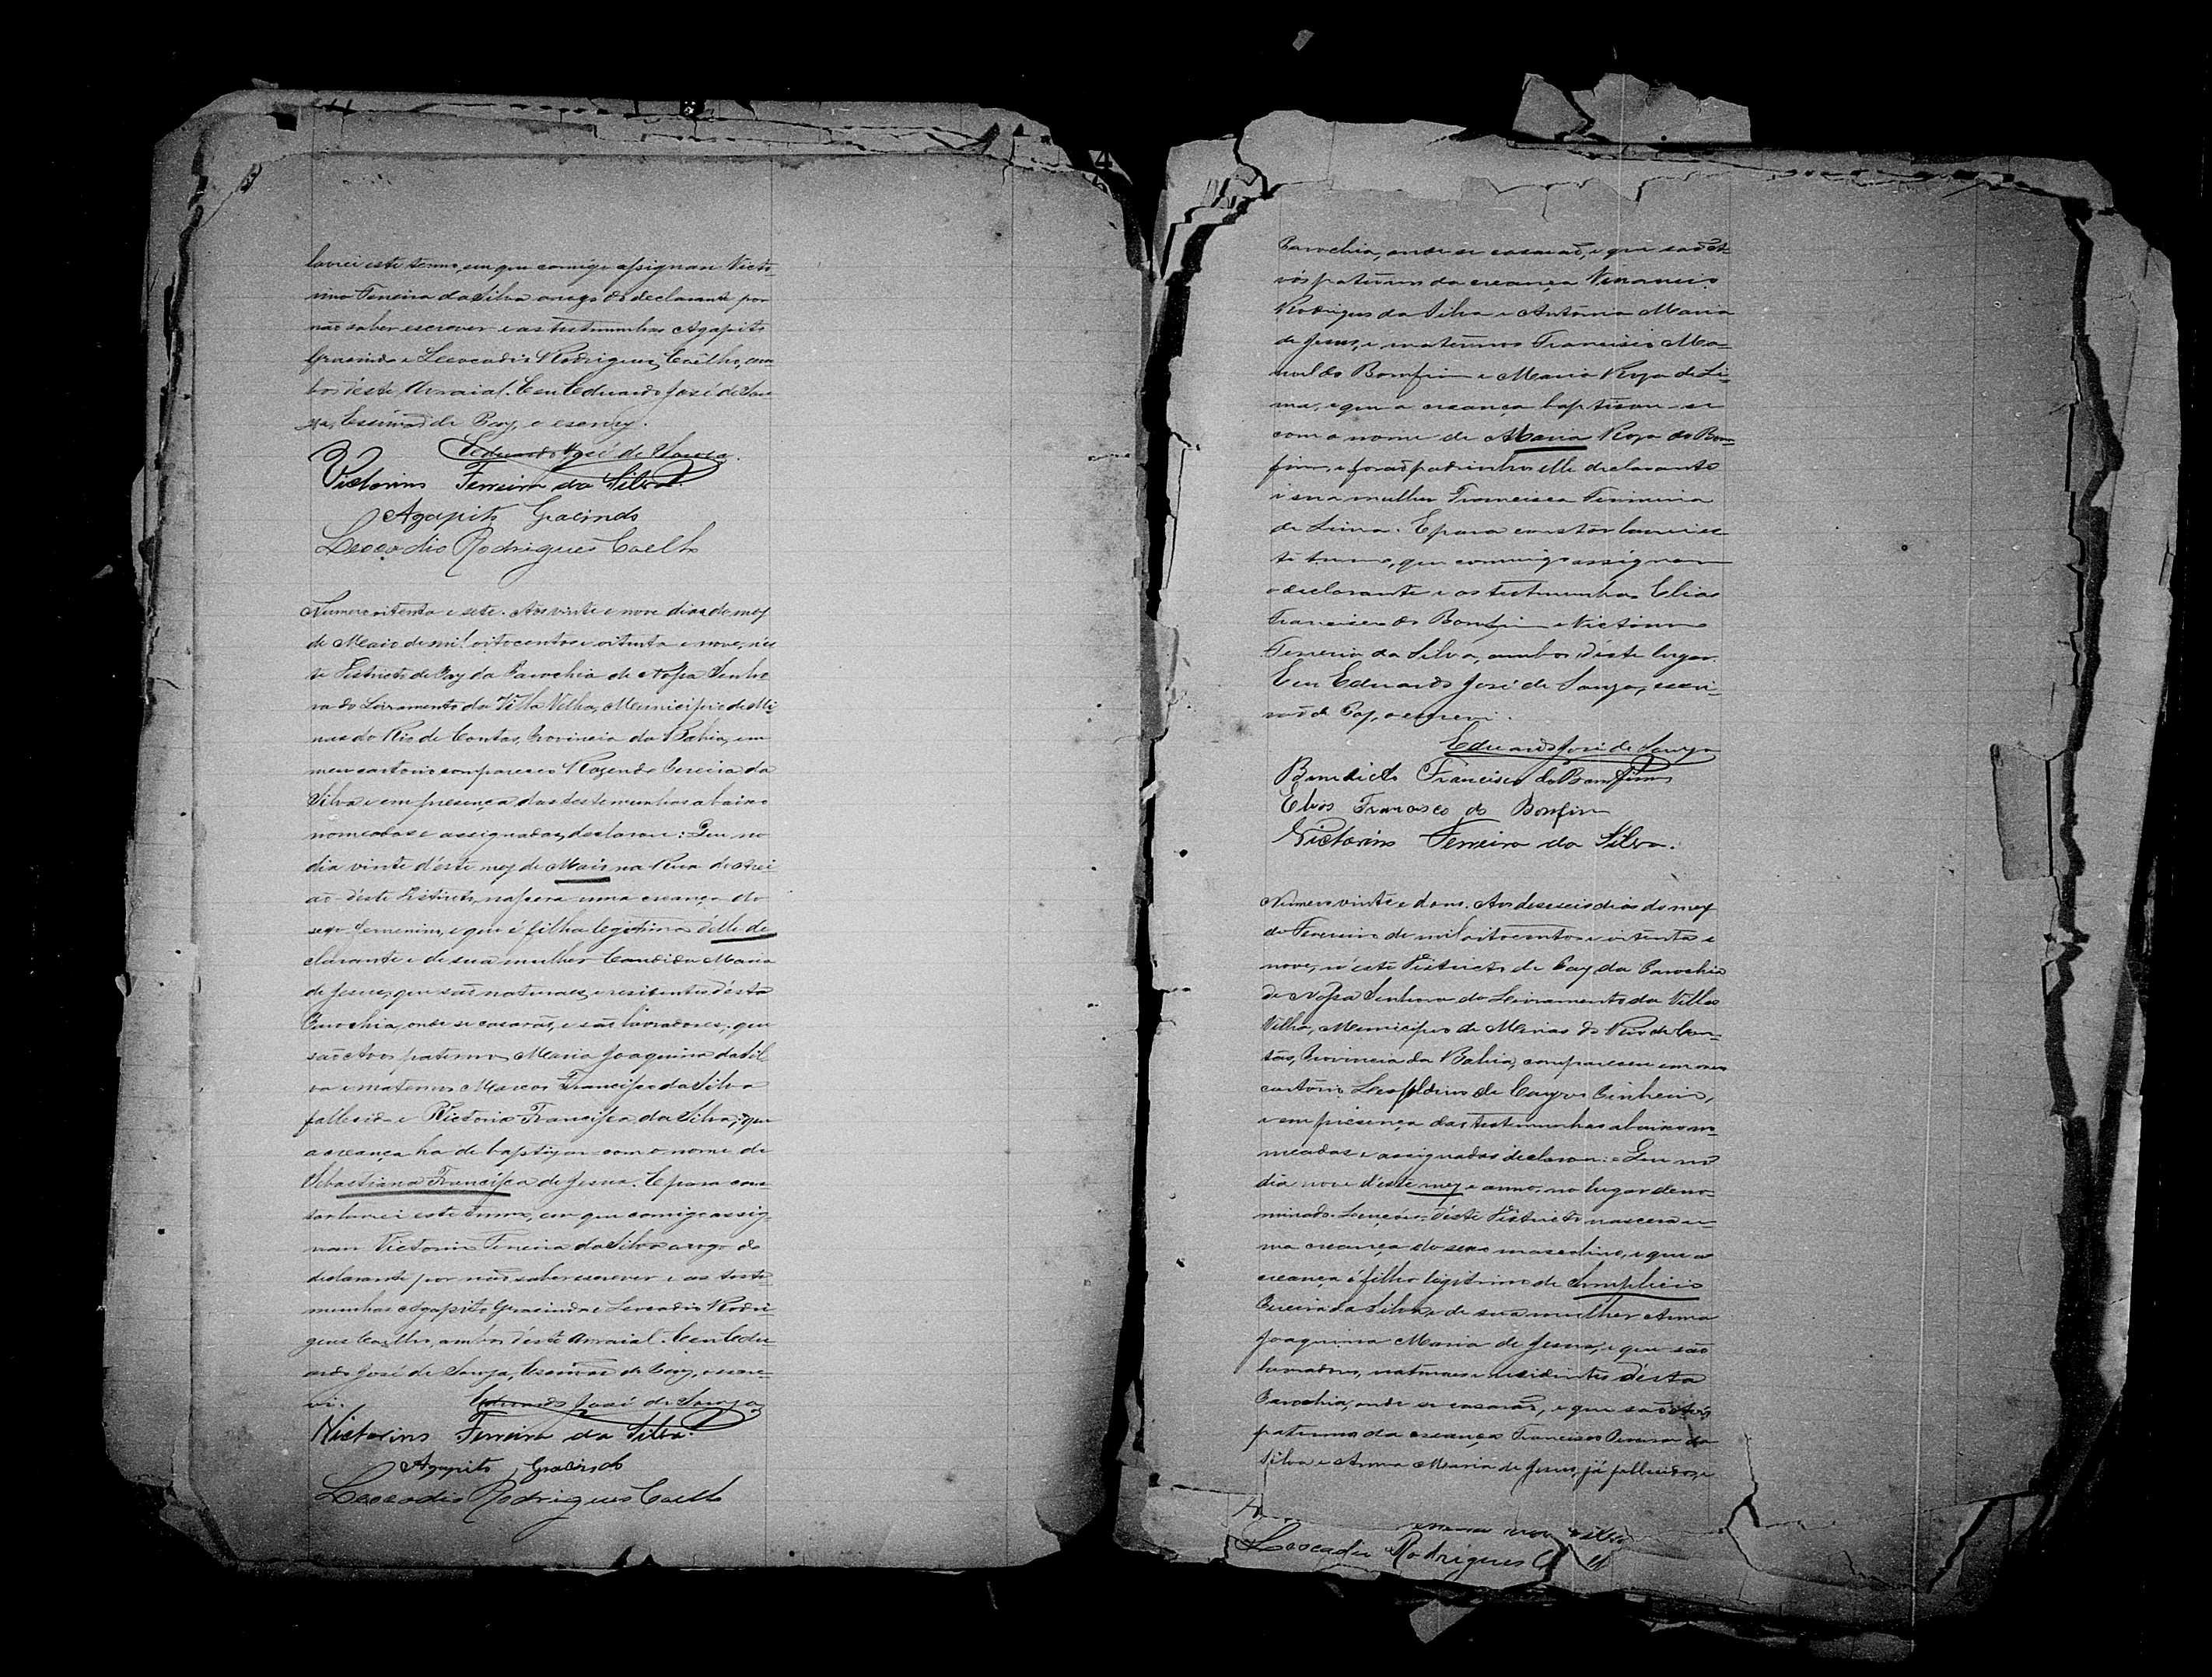 4
lavrei este termo, em que comigo assignou Victo-
rino Ferreira da Silva a rogo do declarante por
não saber escrever e as testemunhas Agapito
Gracindo e Leocadio Rodrigues Coêlho, am-
bos d'este Arraial. Eu Eduardo José de Sou-
za, Escrivão de Paz, o escrevy.
Eduardo José de Souza.
Victorino Ferreira da Silva.
Agapito Gracindo
Leocadio Rodrigues Coelho
Numero oitenta e sete. Aos vinte e nove dias do mez
de Maio de mil oitocentos e oitenta e nove, n'es
te Districto de Paz da Parochia de Nossa Senho
ra do Livramento da Villa Velha, Municipio de Mi
nas do Rio de Contas, Provincia da Bahia, em
meu cartorio compareceo Rozendo Pereira da
Silva e em presença das testemunhas abaixo
nomeadas e assignadas, declarou: Que no
dia vinte d'este mez de Maio na Rua do Arei
ão d'este Districto, nascera uma creança do
sexo femenino, e que é filha legitima d'elle de
clarante e de sua mulher Candida Maria
de Jesus, que são naturaes, e residentes d'esta
Parochia, onde se casarão, e são lavradores; que
são Avos paternos Maria Joaquina da Sil
va e maternos Marcos Francisco da Silva
fallecido e Victoria Francisca da Silva; que
a creança ha de baptizar com o nome de
Sebastiana Francisca de Jesus. E para cons
tar lavrei este termo, em que comigo assig
nou Victorino Ferreira da Silva a rogo do
declarante por não saber escrever e as teste
munhas Agapito Gracindo e Leocadio Rodri
gues Coelho, ambos d'este Arraial. Eu Edu
ardo José de Souza, Escrivão de Paz, o escre-
vi. Eduardo José de Souza
Victorino Ferreira da Silva.
Agapito Gracindo
Leocadio Rodrigues Coelho
Parochia, onde se casarão, e que são A-
vós paternos da creança Venancio
Rodrigues da Silva e Antonia Maria
de Jesus, e maternos Francisco Ma-
noel do Bomfim e Maria Roza de Li-
ma, e que a creança baptisou-se
com o nome de Maria Roza do Bom-
fim, e forão padrinhos elle declarante
e sua mulher Francisca
de Lima. E para constar lavrei es-
te termo, que commigo assignam
o declarante e as testemunhas Elias
Francisco do Bomfim e Victorino
Ferreira da Silva, ambos d'este lugar.
Eu Eduardo José de Souza, escri-
vão de Paz, o escrevi.
Eduardo José de Souza
Benedicto Francisco do Bomfim
Elias Francisco do Bonfim
Victorino Ferreira da Silva.
Numero vinte e dous. Aos deseseis dias do mez
de Fevereiro de mil oitocentos e oitenta e
nove, n'este Districto de Paz da Parochia
de Nossa Senhora do Livramento da Villa
Velha, Municipio de Minas do Rio de Con-
tas, Provincia da Bahia, compareceu em meu
cartorio Leopoldino de Pinheiro,
e em presença das testemunhas abaixo no-
meadas e assignadas declarou: Que no
dia nove d'este mez e anno, no lugar deno-
minado d'este Districto nascera u-
ma creança do sexo masculino, e que a
creança é filho legitimo de Simplicio
Pereira da Silva e de sua mulher Anna
Joaquina Maria de Jesus, e que são
lavradores, naturaes e residentes d'esta
Parochia, onde se casarão, e que são Avós
paternos da creança Francisco Pereira da
Silva e Anna Maria de Jesus, já fallecidos, e
Leocadio Rodrigues